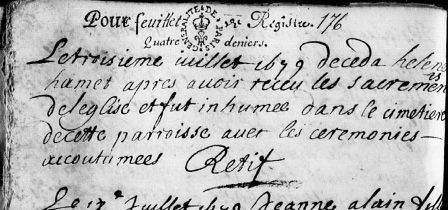 Pour feuillet de Registre. 176
GENERALITE DE PARIS
Quatre deniers.
Le troisieme juillet 1679 deceda helene
hamet apres avoir receu les sacremens
de leglise et fut inhumee dans le cimetiere
de cette parroisse avec les ceremonies
accoutumees Retif
Le 17e Juillet 1679 Jeanne alain